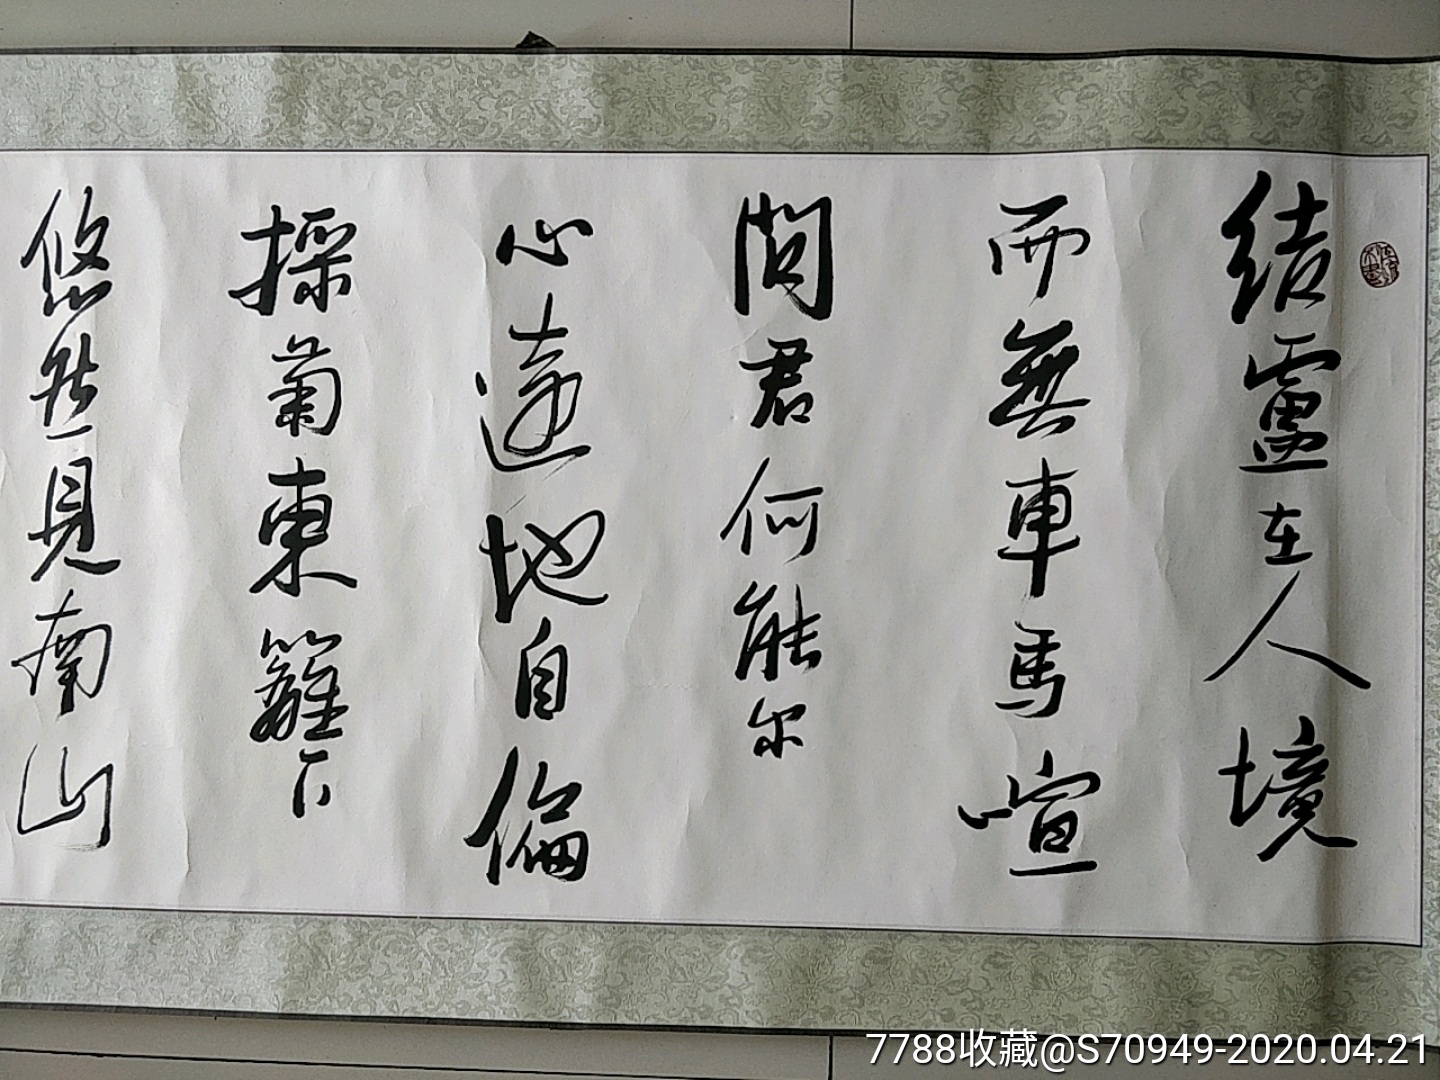 结盧在人境
而無車馬喧
问君何能尔
心遠地自偏
採菊東籬下
悠然見南山
7788收藏@S70949-2020.04.21